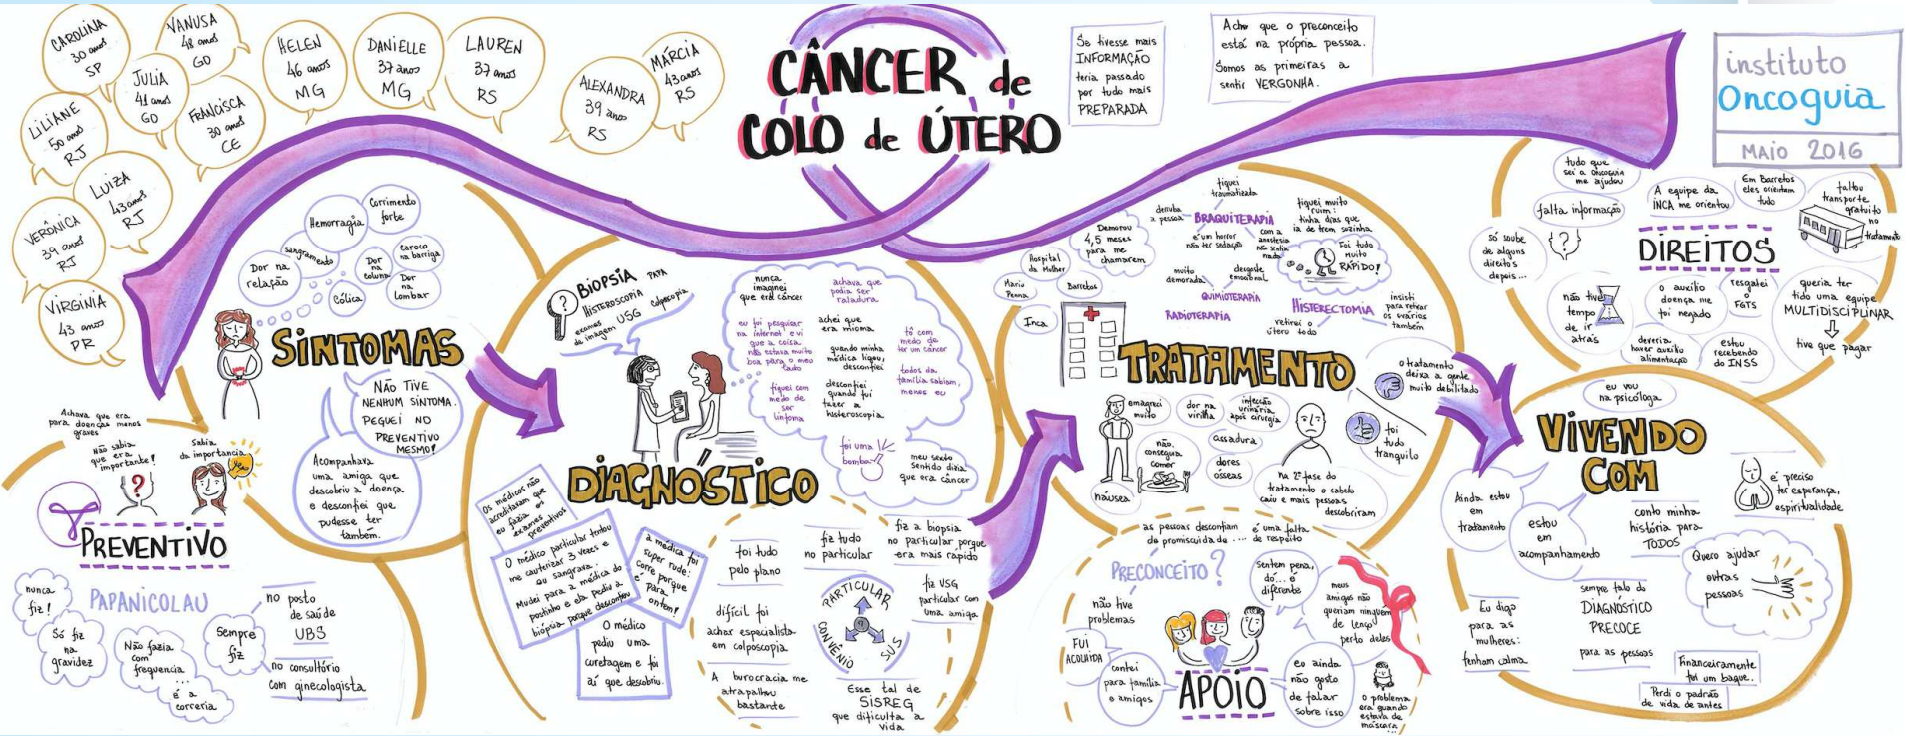 CAROLINA
30 anos
SP
VANUSA
48 anos
GO
JULIA
41 anos
GO
LILIANE
50 anos
RJ
FRANCISCA
30 anos
CE
HELEN
46 anos
MG
DANIELLE
37 anos
MG
LAUREN
37 anos
RS
ALEXANDRA
39 anos
RS
MÁRCIA
43 anos
RS
LUIZA
43 anos
RJ
VERÔNICA
39 anos
RJ
VIRGINIA
43 anos
PR
CÂNCER de
COLO de ÚTERO
Se tivesse mais
INFORMAÇÃO
teria passado
por tudo mais
PREPARADA
Acho que o preconceito
está na própria pessoa.
Somos as primeiras a
sentir VERGONHA.
instituto
Oncoguia
MAIO 2016
SINTOMAS
Hemorragia
Corrimento
forte
sangramento
Dor na
relação
Cólica
Dor
na
coluna
caroço
na barriga
Dor
na
lombar
NÃO TIVE
NENHUM SINTOMA.
PEGUEI NO
PREVENTIVO
MESMO!
Acompanhava
uma amiga que
descobriu a doença
e desconfiei que
pudesse ter
também.
Achava que era
para doenças menos
graves
Não sabia
que era
importante!
?
Sabia
da importancia
PREVENTIVO
PAPANICOLAU
nunca
fiz!
Só fiz
na
gravidez
Não fazia
com
frequencia
...
é a
correria
Sempre
fiz
no posto
de saúde
UBS
no consultório
com ginecologista
DIAGNÓSTICO
?
BIOPSIA
PAPA
HISTEROSCOPIA
Colposcopia
exames
de imagem
USG
nunca
imaginei
que era câncer
achava que
podia ser
raladura
eu fui pesquisar
na internet e vi
que a coisa
não estava muito
boa para o meu
lado
achei que
era mioma
quando minha
médica ligou,
desconfiei
tô com
medo de
ter um câncer
fiquei com
medo de
ser
linfoma
desconfiei
quando fui
fazer a
histeroscopia
todos da
família sabiam,
menos eu
foi uma
bomba
meu sexto
sentido dizia
que era câncer
Os médicos não
acreditam que
eu fazia os
exames
preventivos
O médico particular tentou
me cauterizar 3 vezes e
eu sangrava.
Mudei para a médica do
postinho e ela pediu a
biópsia porque desconfiou
a médica foi
super rude:
corre porque
é para
ontem!
O médico
pediu uma
curetagem e foi
aí que descobriu.
foi tudo
pelo plano
fiz tudo
no particular
fiz a biopsia
no particular porque
era mais rápido
difícil foi
achar especialista
em colposcopia
PARTICULAR
CONVÊNIO
SUS
fiz USG
particular com
uma amiga
A burocracia me
atrapalhou
bastante
Esse tal de
SISREG
que dificulta a
vida
TRATAMENTO
Hospital
da Mulher
Mario
Penna
Barretos
Inca
Demorou
4,5 meses
para me
chamarem
fiquei
traumatizada
derruba
a pessoa
BRAQUITERAPIA
é um horror
não ter sedação
com a
anestesia
não senti
nada
muito
demorada
desgaste
emocional
QUIMIOTERAPIA
RADIOTERAPIA
fiquei muito
ruim:
tinha dias que
ia de trem sozinha
Foi tudo
muito
RÁPIDO!
HISTERECTOMIA
retirei o
útero todo
insisti
para retirar
os ovários
também
o tratamento
deixa a gente
muito debilitado
foi
tudo
tranquilo
emagreci
muito
dor na
virilha
infecção
urinária
após cirurgia
não
conseguia
comer
assadura
dores
ósseas
náusea
na 2ª fase do
tratamento o cabelo
caiu e mais pessoas
descobriram
as pessoas desconfiam
da promiscuidade ....
é uma falta
de respeito
PRECONCEITO?
não tive
problemas
FUI
ACOLHIDA
contei
para família
e amigos
Sentem pena,
dó... é
diferente
meus
amigos não
queriam ninguém
de lenço
perto deles
APOIO
eu ainda
não gosto
de falar
sobre isso
o problema
era quando
estava de
máscara
...
DIREITOS
tudo que
sei a oncoguia
me ajudou
falta informação
{?}
só soube
de alguns
direitos
depois...
A equipe da
INCA me orientou
Em Barretos
eles orientam
tudo
faltou
transporte
gratuito
no
tratamento
não tive
tempo
de ir
atrás
o auxílio
doença me
foi negado
resgatei
o
FGTS
deveria
haver auxílio
alimentação
estou
recebendo
do INSS
queria ter
tido uma equipe
MULTIDISCIPLINAR
tive que pagar
VIVENDO
COM
eu vou
na psicóloga
Ainda estou
em
tratamento
estou
em
acompanhamento
conto minha
história para
TODOS
é preciso
ter esperança,
espiritualidade
Quero ajudar
outras
pessoas
Eu digo
para as
mulheres:
tenham calma
sempre falo do
DIAGNOSTICO
PRECOCE
para as pessoas
Financeiramente
foi um baque.
Perdi o padrão
de vida de antes